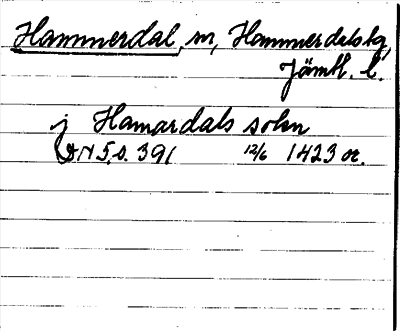 Hammerdal, sn, Hammerdals tg,
Jämtl. l.
j Hamardals sokn
DN 5, s. 391 12/6 1423 or.